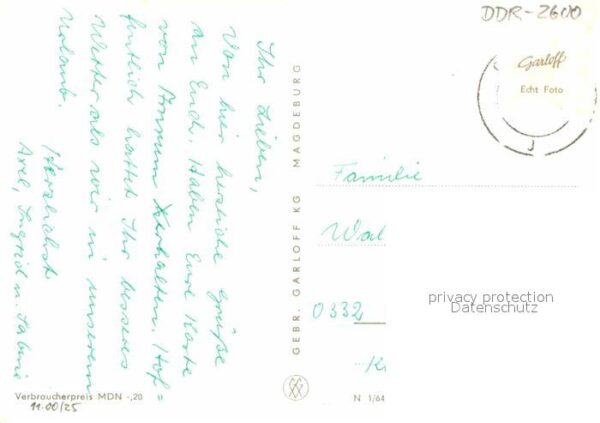 DDR-2600
Garloff
Echt Foto
Ihr Lieben,
Von hier herzliche Grüße
an Euch. Haben Eure Karte
von Ammum erhalten. Hof=
fentlich hattet Ihr besseres
Wetter als wir in unserem
Urlaub.
Herzlichst
Axel, Ingrid u. Sabine
GEBR. GARLOFF KG MAGDEBURG
Familie
Wal
0332
privacy protection
Datenschutz
Verbraucherpreis MDN -,20
11.00/25
N 1/64